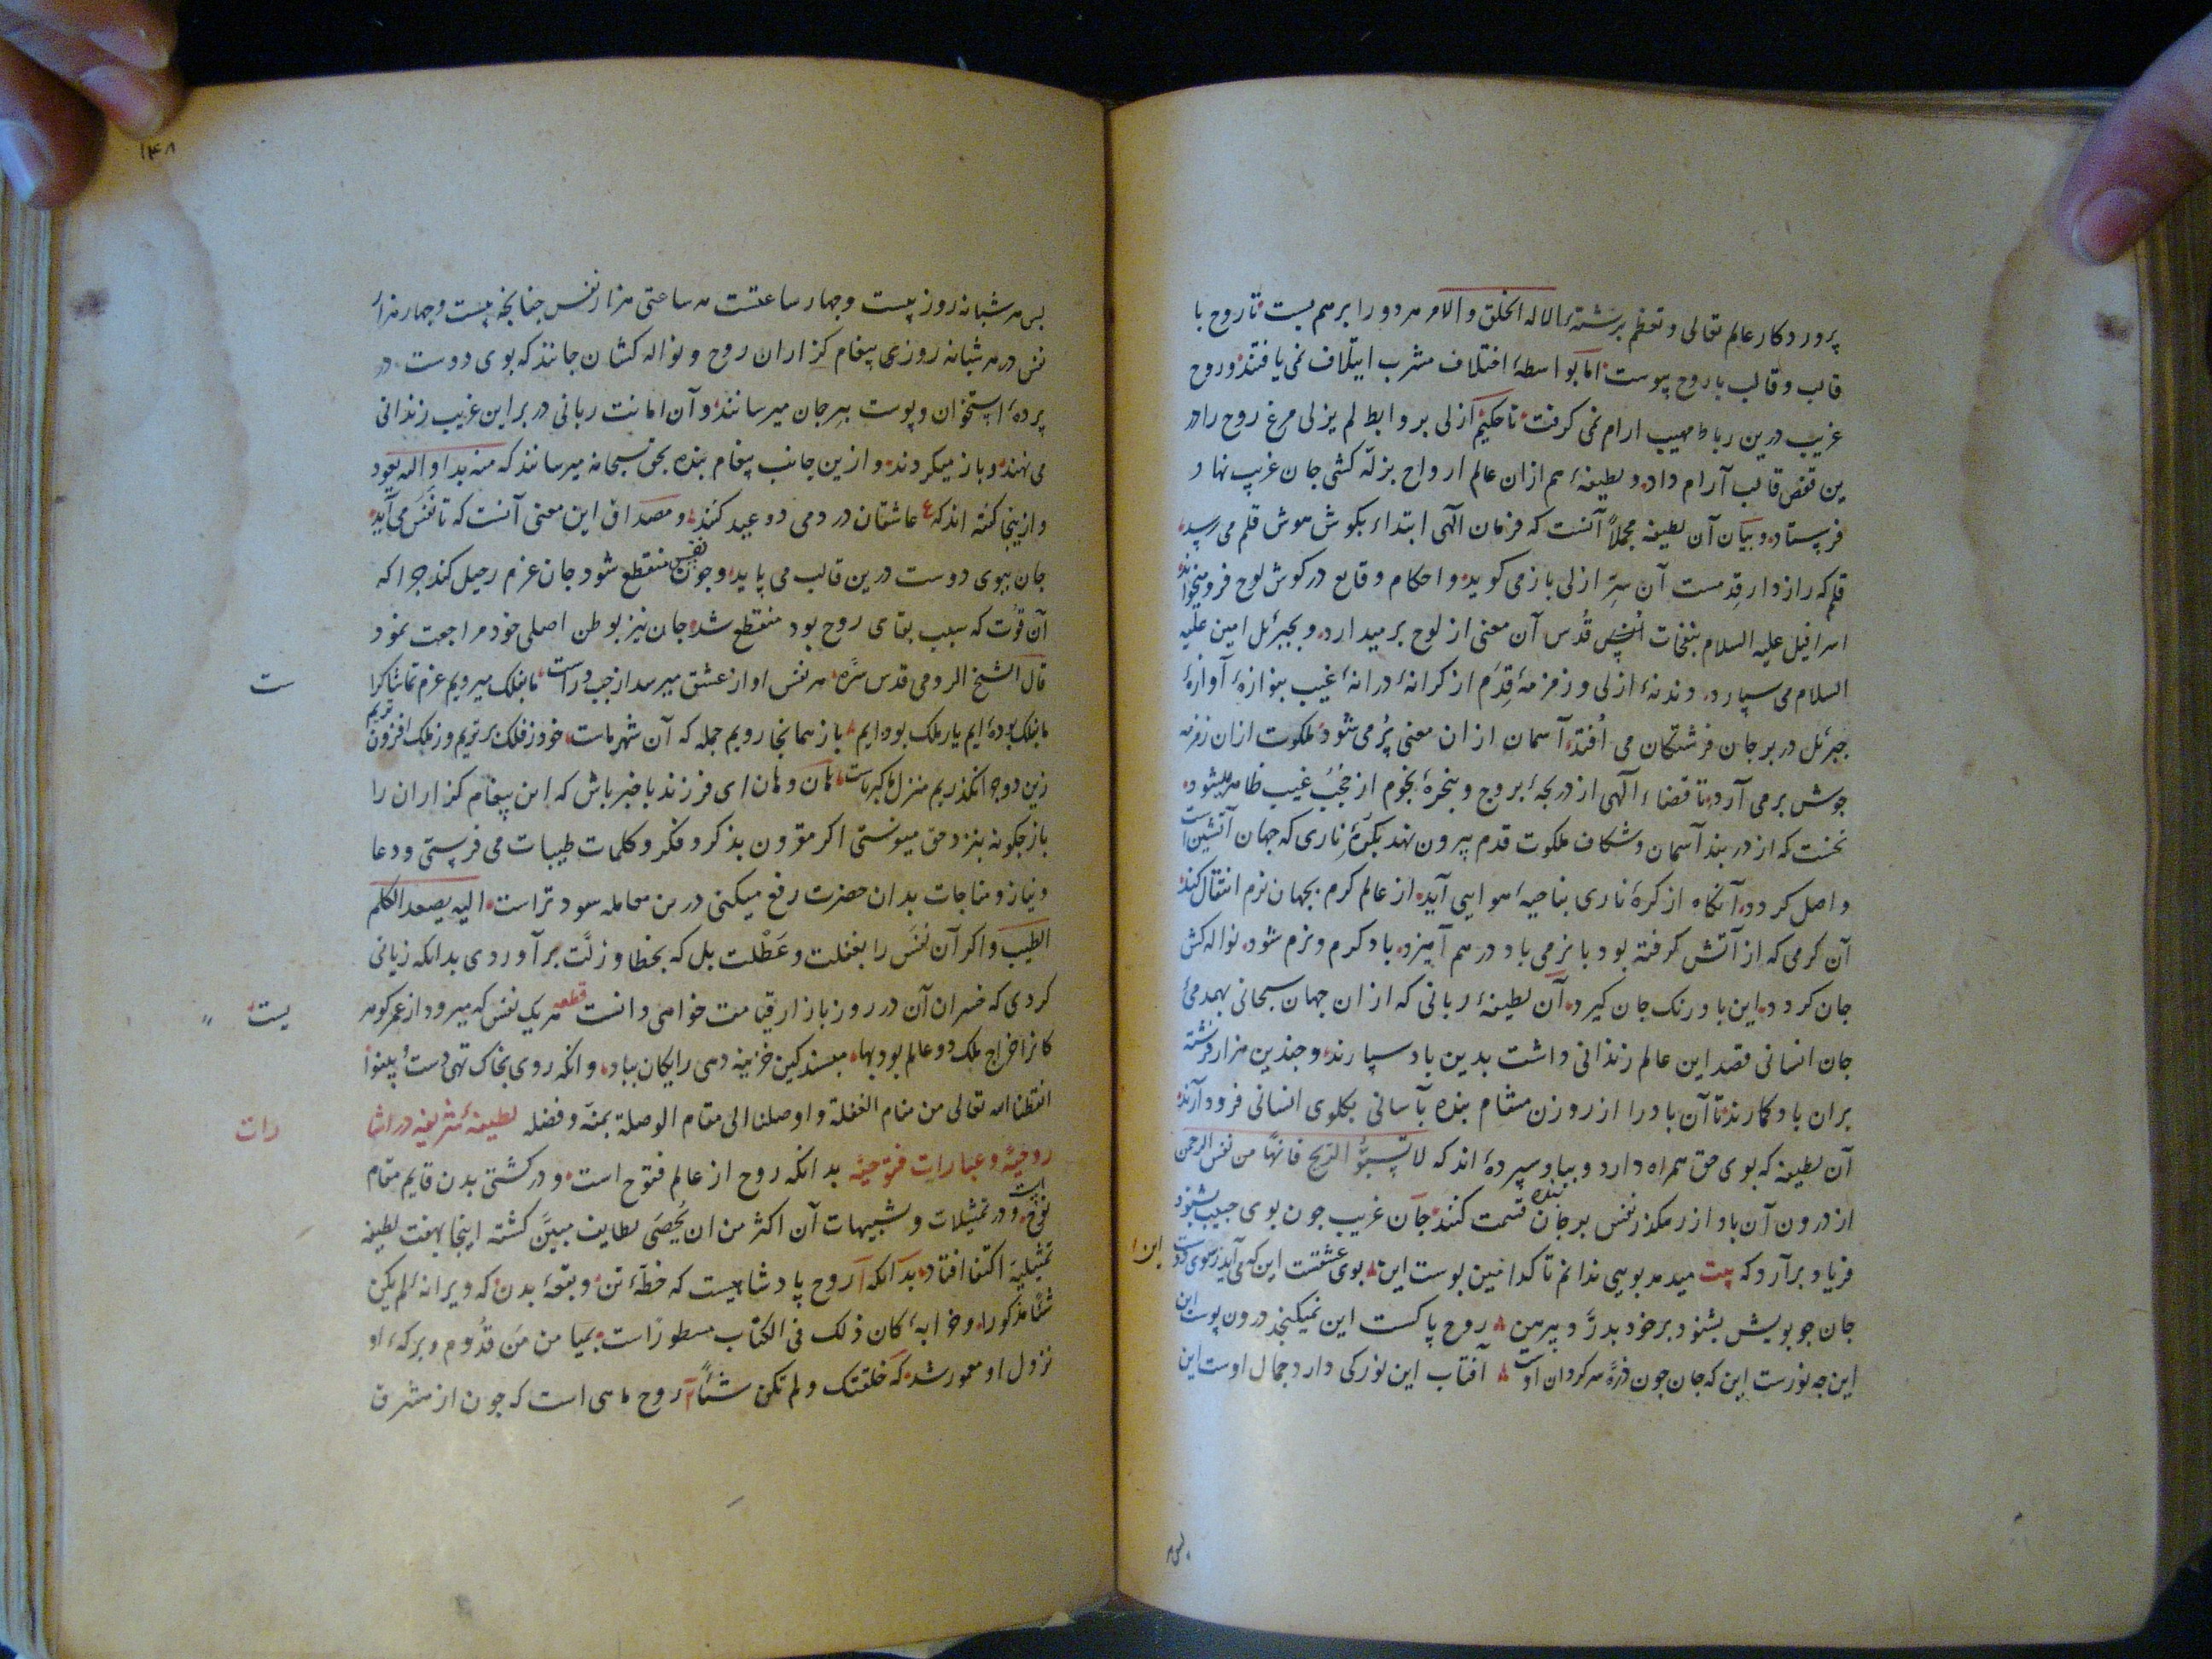 پروردکار عالم تعالی و تعظم برشتهٔ الاله الخلق والامر هر دو را برهم بست تا روح با
قالب و قالب با روح پیوست اما بواسطهٔ اختلاف مشرب ایتلاف نمی یافتند و روح
غریب درین رباط مهیب ارام نمی کرفت تا حکیم ازلی بروابط لم یزلی مرغ روح را در
ین قفص قالب آرام داد و لطیفهٔ هم ازان عالم ارواح بزلّه کشی جان غریب نهاد
فرستاد و بیان آن لطیفه مجملاً آنست که فرمان الهی ابتداء بکوش هوش قلم می رسید
قلم که رازدار قدمست آن سرّ ازلی باز می کوید و احکام وقایع در کوش لوح فرو میخواند
اسرافیل علیه السلام بنفخات قُدس آن معنی از لوح برمیدارد و بجبرئل امین علیه
السلام می سپارد و دندنهٔ ازلی و زمزمهٔ قِدَم از کرانهٔ درانهٔ غیب بنوازهٔ آوازهٔ
جبرئل در بر جان فرشتکان می اُفتد آسمان ازان معنی پُر می شود ملکوت ازان زمزمه
جوش برمی آرد تا قضاء آلهی از دریجهٔ بروج و پنجرهٔ نجوم از حُجُب غیب ظاهر میشود
نخست که از در بند آسمان و شکاف ملکوت قدم بیرون نهد بکُرَهٔ ناری که جهان آتشین است
واصل کردد آنکاه از کرهٔ ناری بناحیهٔ هوایی آید از عالم کرم بجهان نرم انتقال کند
آن کرمی که از آتش کرفته بود با نرمی باد درهم آمیزد باد کرم و نرم شود نواله کش
جان کردد این باد رنک جان کیرد آن لطیفهٔ ربانی که ازان جهان سبحانی بهمدمئ
جان انسانی قصد این عالم زندانی داشت بدین باد سپارند و جندین هزار فرشته
بران باد کمارند تا آن باد را از روزن مشام بنده بآسانی بکلوی انسانی فرود آرند
آن لطیفه که بوی حق همراه دارد و بباد سپردهٔ اند که لا تسبّوا الریح فانّها من نفس الرحمن
از درون آن باد از رهکذر نفس بر جان بنده قسمت کنند جان غریب جون بوی حبیب بشنود
فریاد برآرد که بیت میدمد بویی ندانم تا کدامین بوست این بوی عشقست این که می آید ز سوی دوست این
جان جو بویش بشنود بر خود بدرّد پیرهن روح پاکست این نمیکنجد درون پوست این
این جه نورست این که جان جون ذرّه سرکردان اوست آفتاب این نور کی دارد جمال اوست این
پس هر
۱۴۸
پس هر شبانه روز بیست و جهار ساعتست هر ساعتی هزار نفس جنانجه بیست و جهار هزار
نفس در هر شبانه روزی پیغام کزاران روح و نواله کشان جانند که بوی دوست در
پردهٔ استخوان و پوست ببر جان میرسانند و آن امانت ربانی در بر این غریب زندانی
می نهند و باز میکردند و ازین جانب پیغام بنده بحق سبحانه میرسانند که منه بدا و الیه یعود
و ازینجا کفته اند که ع عاشقان در دمی دو عید کنند و مصداق این معنی آنست که تا نَفَس می آید
جان ببوی دوست درین قالب می پاید و جون نفس منقطع شود جان عزم رحیل کند جرا که
آن قوّت که سبب بقای روح بود منقطع شد جان نیز بوطن اصلی خود مراجعت نمود
قال الشیخ الرومی قدس سرّه هر نفس اواز عشق میرسد از جب و راست ما بفلک میرویم عزم تماشا کراست
ما بفلک بودهٔ ایم یار ملک بوده ایم باز همانجا رویم جمله که آن شهر ماست خود ز فلک برتریم وز ملک افزونتریم
زین دو جرا نکذریم منزل ما کبریاست هان و هان ای فرزند با خبر باش که این پیغام کزاران را
باز جکونه بنزد حق میفرستی اکر مقرون بذکر و فکر و کلمات طیبات می فرستی و دعا
و نیاز و مناجات بدان حضرت رفع میکنی درین معامله سود تراست الیه یصعد الکلم
الطیب و اکر آن نفس را بغفلت و عَطْلت بل که بخطا و زلّت برآوردی بدانکه زیانی
کردی که خسران آن در روز بازار قیامت خواهی دانست قطعه هر یک نفس که میرود از عمر کوهریست
کانرا خراج ملک دو عالم بود بها مپسند کین خزینه دهی رایکان بباد وانکه روی بخاک تهی دست و بینوا
ایقظنا الله تعالی من منام الغفلة و اوصلنا الی مقام الوصلة بمنّه و فضله لطیفهٔ شریفه در اشارات
روحیّه و عبارات فتوحیّه بدانکه روح از عالم فتوح است و در کشتی بدن قایم مقام
نوح است و در تمثیلات و تشبیهات آن اکثر من ان یُحصَی لطایف مبیَّن کشته اینجا بهفت لطیفه
تمثیلیّه اکتفا افتاد بدانکه ا روح پادشاهیست که خطّهٔ تن و بقعهٔ بدن که ویرانهٔ لم یکن
شئا مذکورا و خرابهٔ کان ذلک فی الکتاب مسطورا است بمیامن مَن قدُوم و برکهٔ او
نزول او معمور شد که خلقتک و لم تکن شئاً ۲ روح ماهی است که جون از مشرق